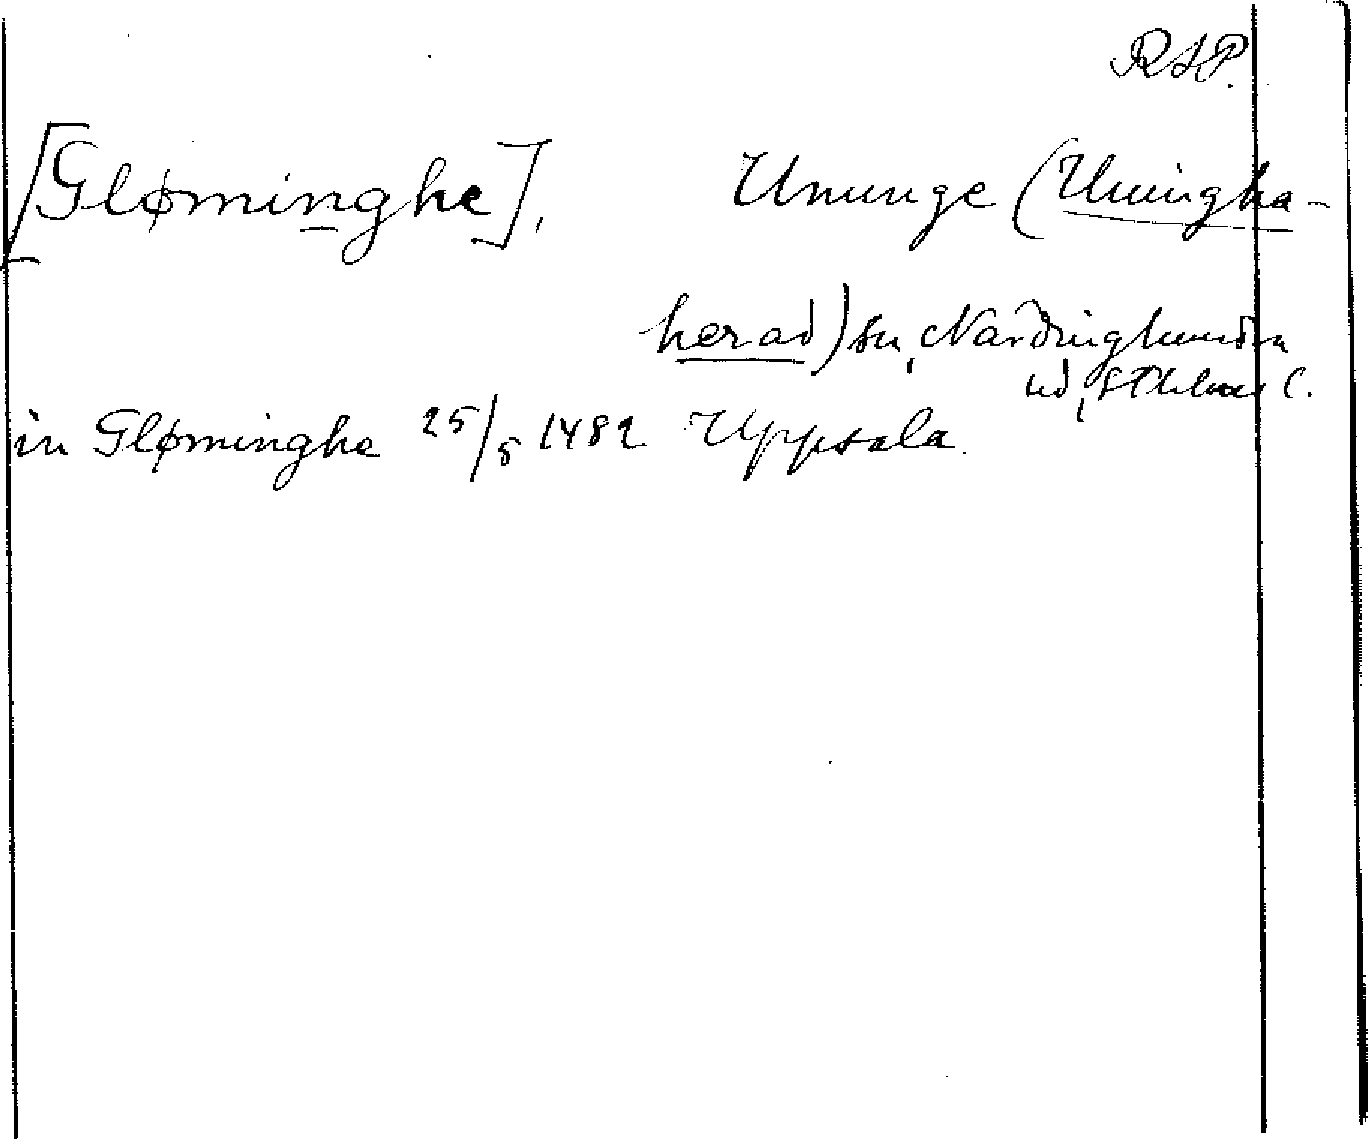 RAP.
[Gløminghe], Ununge (Uningha-
herad) sn, Närdinghundra
hd, Sthlms l.
in Gløminghe 25/5 1482 Uppsala.